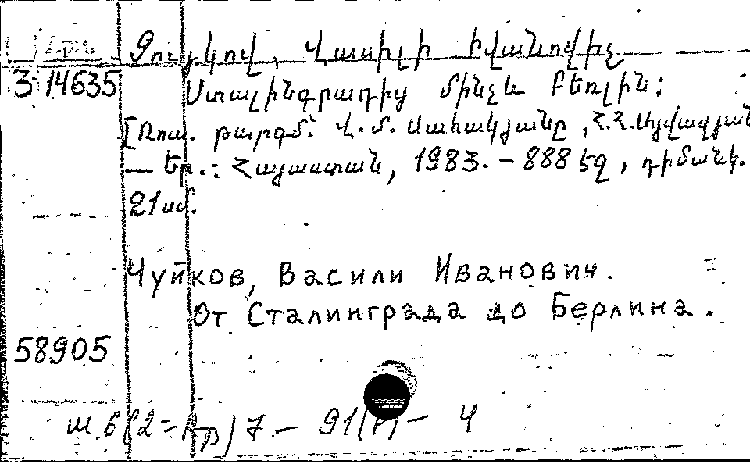 Չույկով, Վասիլի Իվանովիչ
3 14635 Ստալինգրադից մինչև Բեռլին:
[Ռուս. թարգմ.՝ Վ. Մ. Սահակյանը, Հ. Հ. Այվազյան
— Եր.: Հայաստան, 1983. – 888 էջ, դիմանկ.
21 սմ.
Чуйков, Васили Иванович.
От Сталинграда до Берлина.
58905
7 – 91 – 4